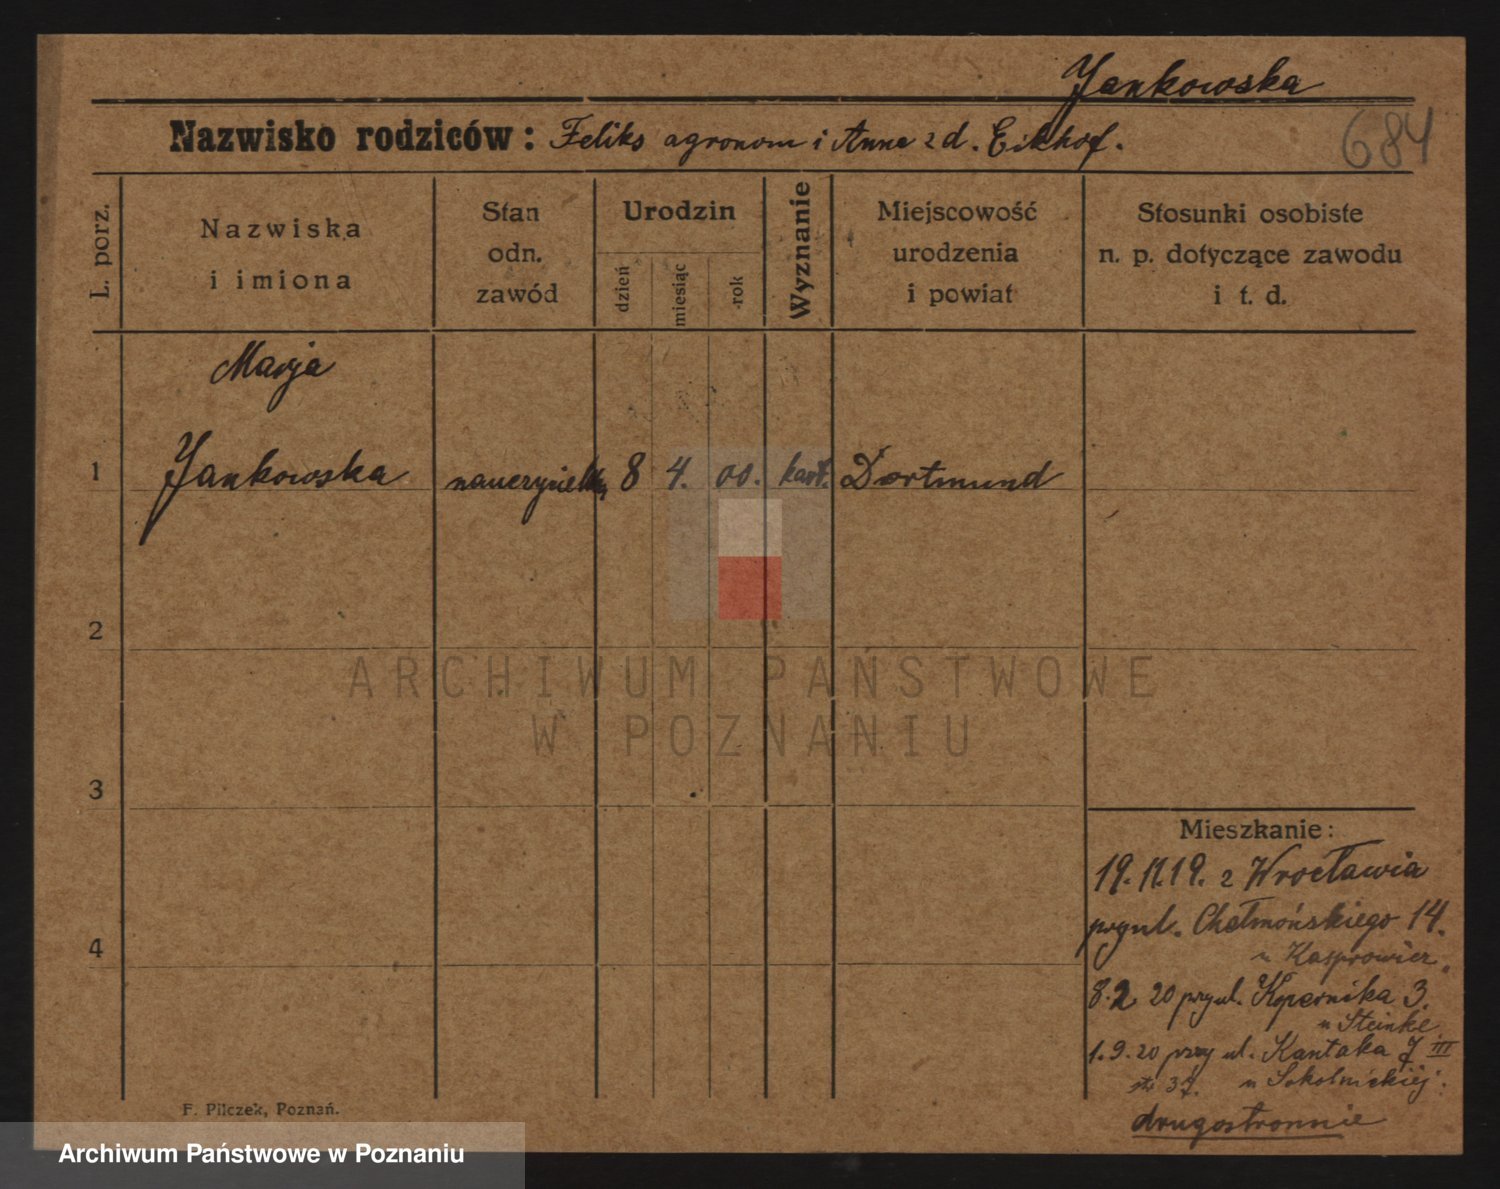 Jankowska
Nazwisko rodziców: Feliks agronom i Anna z d. Eikhof.
684
L. porz.
Nazwiska
i imiona
Stan
odn.
zawód
Urodzin
dzień
miesiąc
rok
Wyznanie
Miejscowość
urodzenia
i powiat
Stosunki osobiste
n. p. dotyczące zawodu
i t. d.
Marja
1 Jankowska nauczycielka 8 4. 00. kat. Dortmund
2
3
4
Mieszkanie:
19.11.19. z Wrocławia
przy ul. Chełmońskiego 14.
u Kasprowicz
8.2 20 przy ul. Kopernika 3.
u Steinke
1.9.20 przy ul. Kantaka 7 III
str 37. u Sokolnickiej.
drugostronnie
F. Pilczek, Poznań.
ARCHIWUM PAŃSTWOWE
W POZNANIU
Archiwum Państwowe w Poznaniu